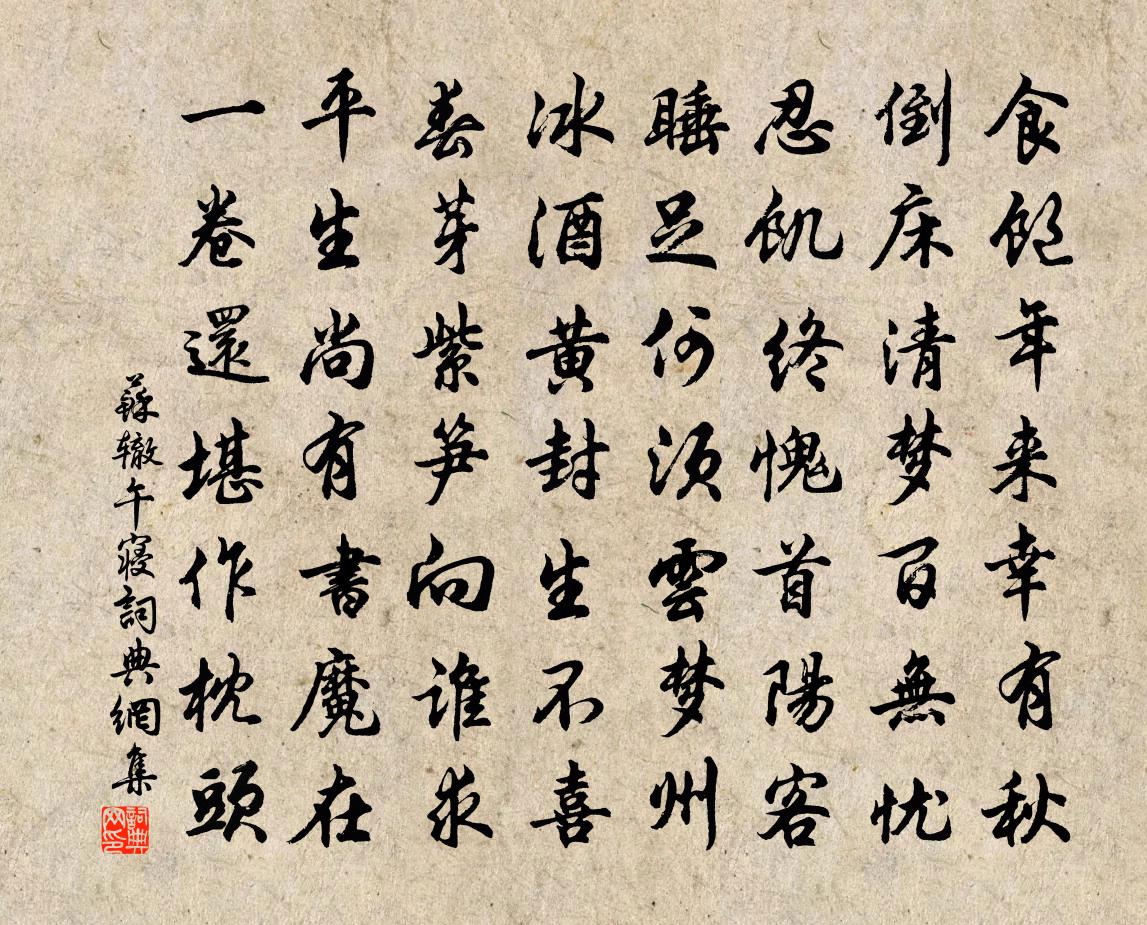 食飽年来幸有秋
倒床清梦百無忧
忍飢终愧首陽客
睡足何须雲梦州
冰酒黄封生不喜
春芽紫笋向谁求
平生尚有書魔在
一卷還堪作枕頭
蘇辙午寝詞典網集
詞典
网印